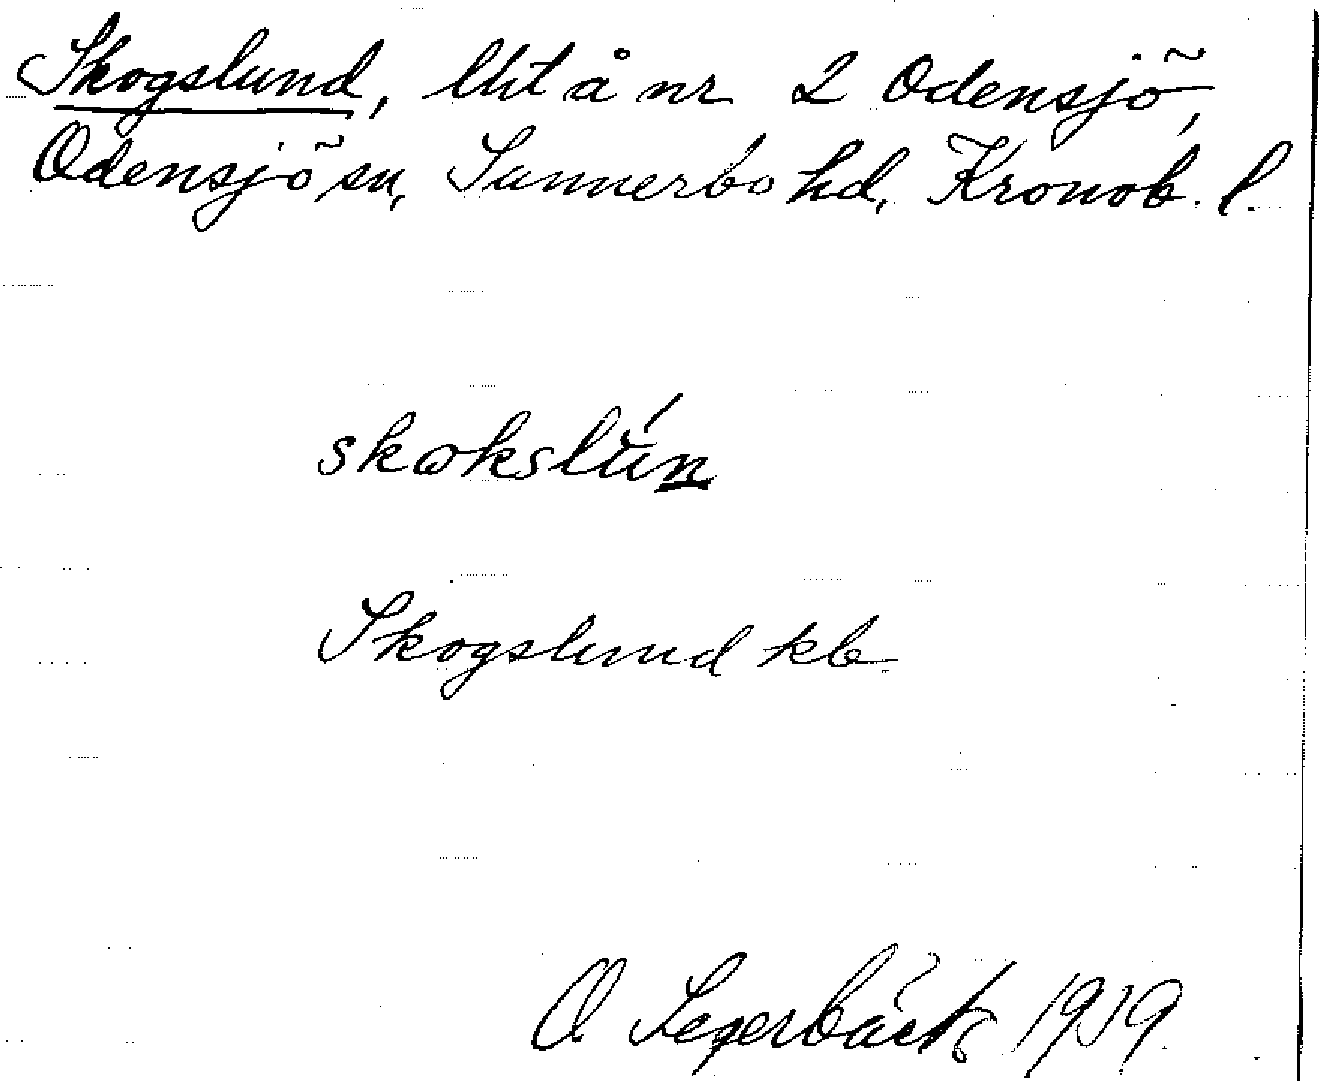 Skogslund, lht å nr 2 Odensjö,
Odensjö sn, Sunnerbo hd, Kronob. l.
skokslún
Skogslund kb
O. Segerbäck 1919.